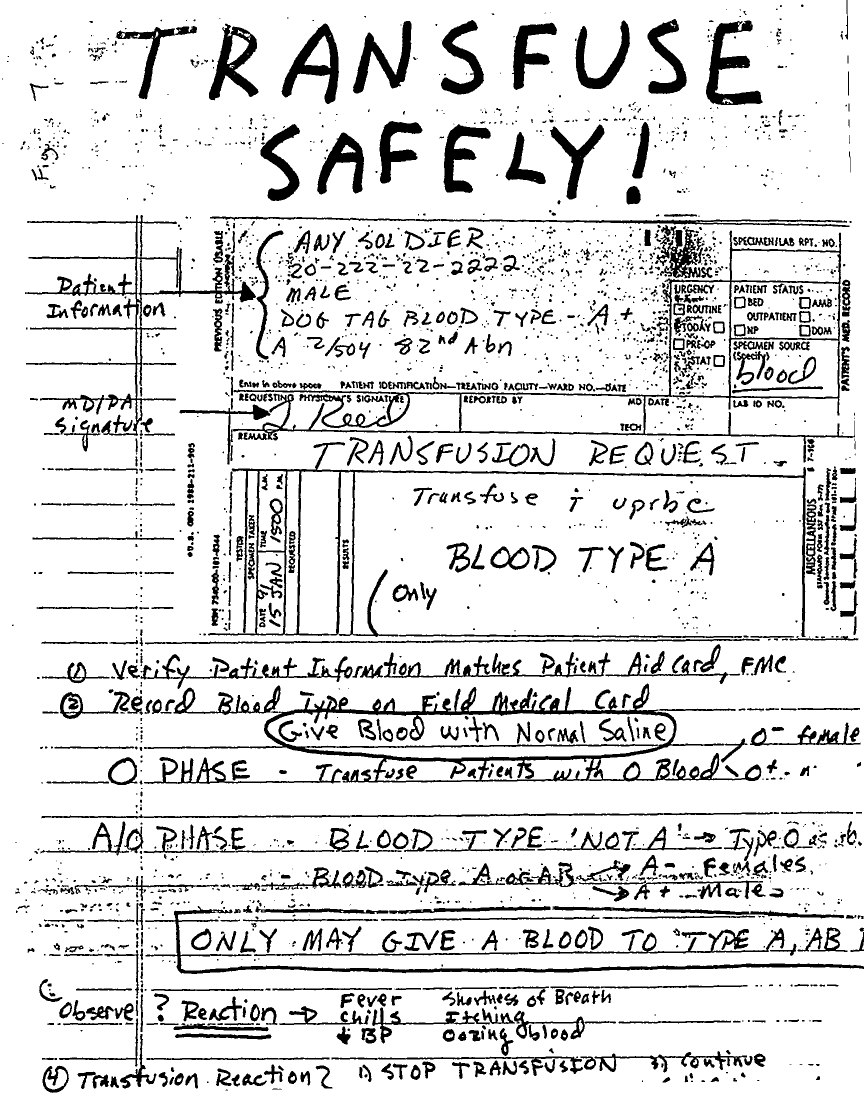 TRANSFUSE
SAFELY!
Fig 7
PREVIOUS EDITION USABLE
Patient
Information
ANY SOLDIER
20-222-22-2222
MALE
DOG TAG BLOOD TYPE - A+
A 2/504 82nd Abn
MISC
URGENCY
ROUTINE
TODAY
PRE-OP
STAT
SPECIMEN/LAB RPT. NO.
PATIENT STATUS
BED AMB
OUTPATIENT
NP DOM
SPECIMEN SOURCE
(Specify)
blood
PATIENT'S MED. RECORD
Enter in above space PATIENT IDENTIFICATION—TREATING FACILITY—WARD NO.—DATE
MD/PA
Signature
REQUESTING PHYSICIAN'S SIGNATURE
J. Reed
REPORTED BY
MD
TECH
DATE
LAB ID NO.
REMARKS
TRANSFUSION REQUEST
TESTED
SPECIMEN TAKEN
DATE 91 TIME A.M. P.M.
15 JAN 1500
REQUESTED
RESULTS
Transfuse uprbc
BLOOD TYPE A
Only
MISCELLANEOUS
① Verify Patient Information Matches Patient Aid Card, FMC
② Record Blood Type on Field Medical Card
Give Blood with Normal Saline
O PHASE - Transfuse Patients with O Blood O- female
O+
A/O PHASE - BLOOD TYPE 'NOT A' → Type O
- BLOOD Type A or AB → A- Females
→ A+ Males
ONLY MAY GIVE A BLOOD TO TYPE A, AB
Observe ? Reaction → Fever Shortness of Breath
Chills Itching
↓ BP Oozing blood
④ Transfusion Reaction? 1) STOP TRANSFUSION continue